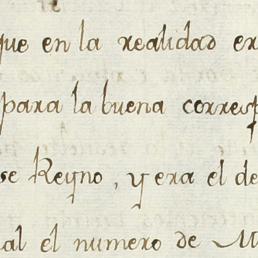 que en la realidad er
para la buena corresp
se Reyno, y era el de
al el numero de M